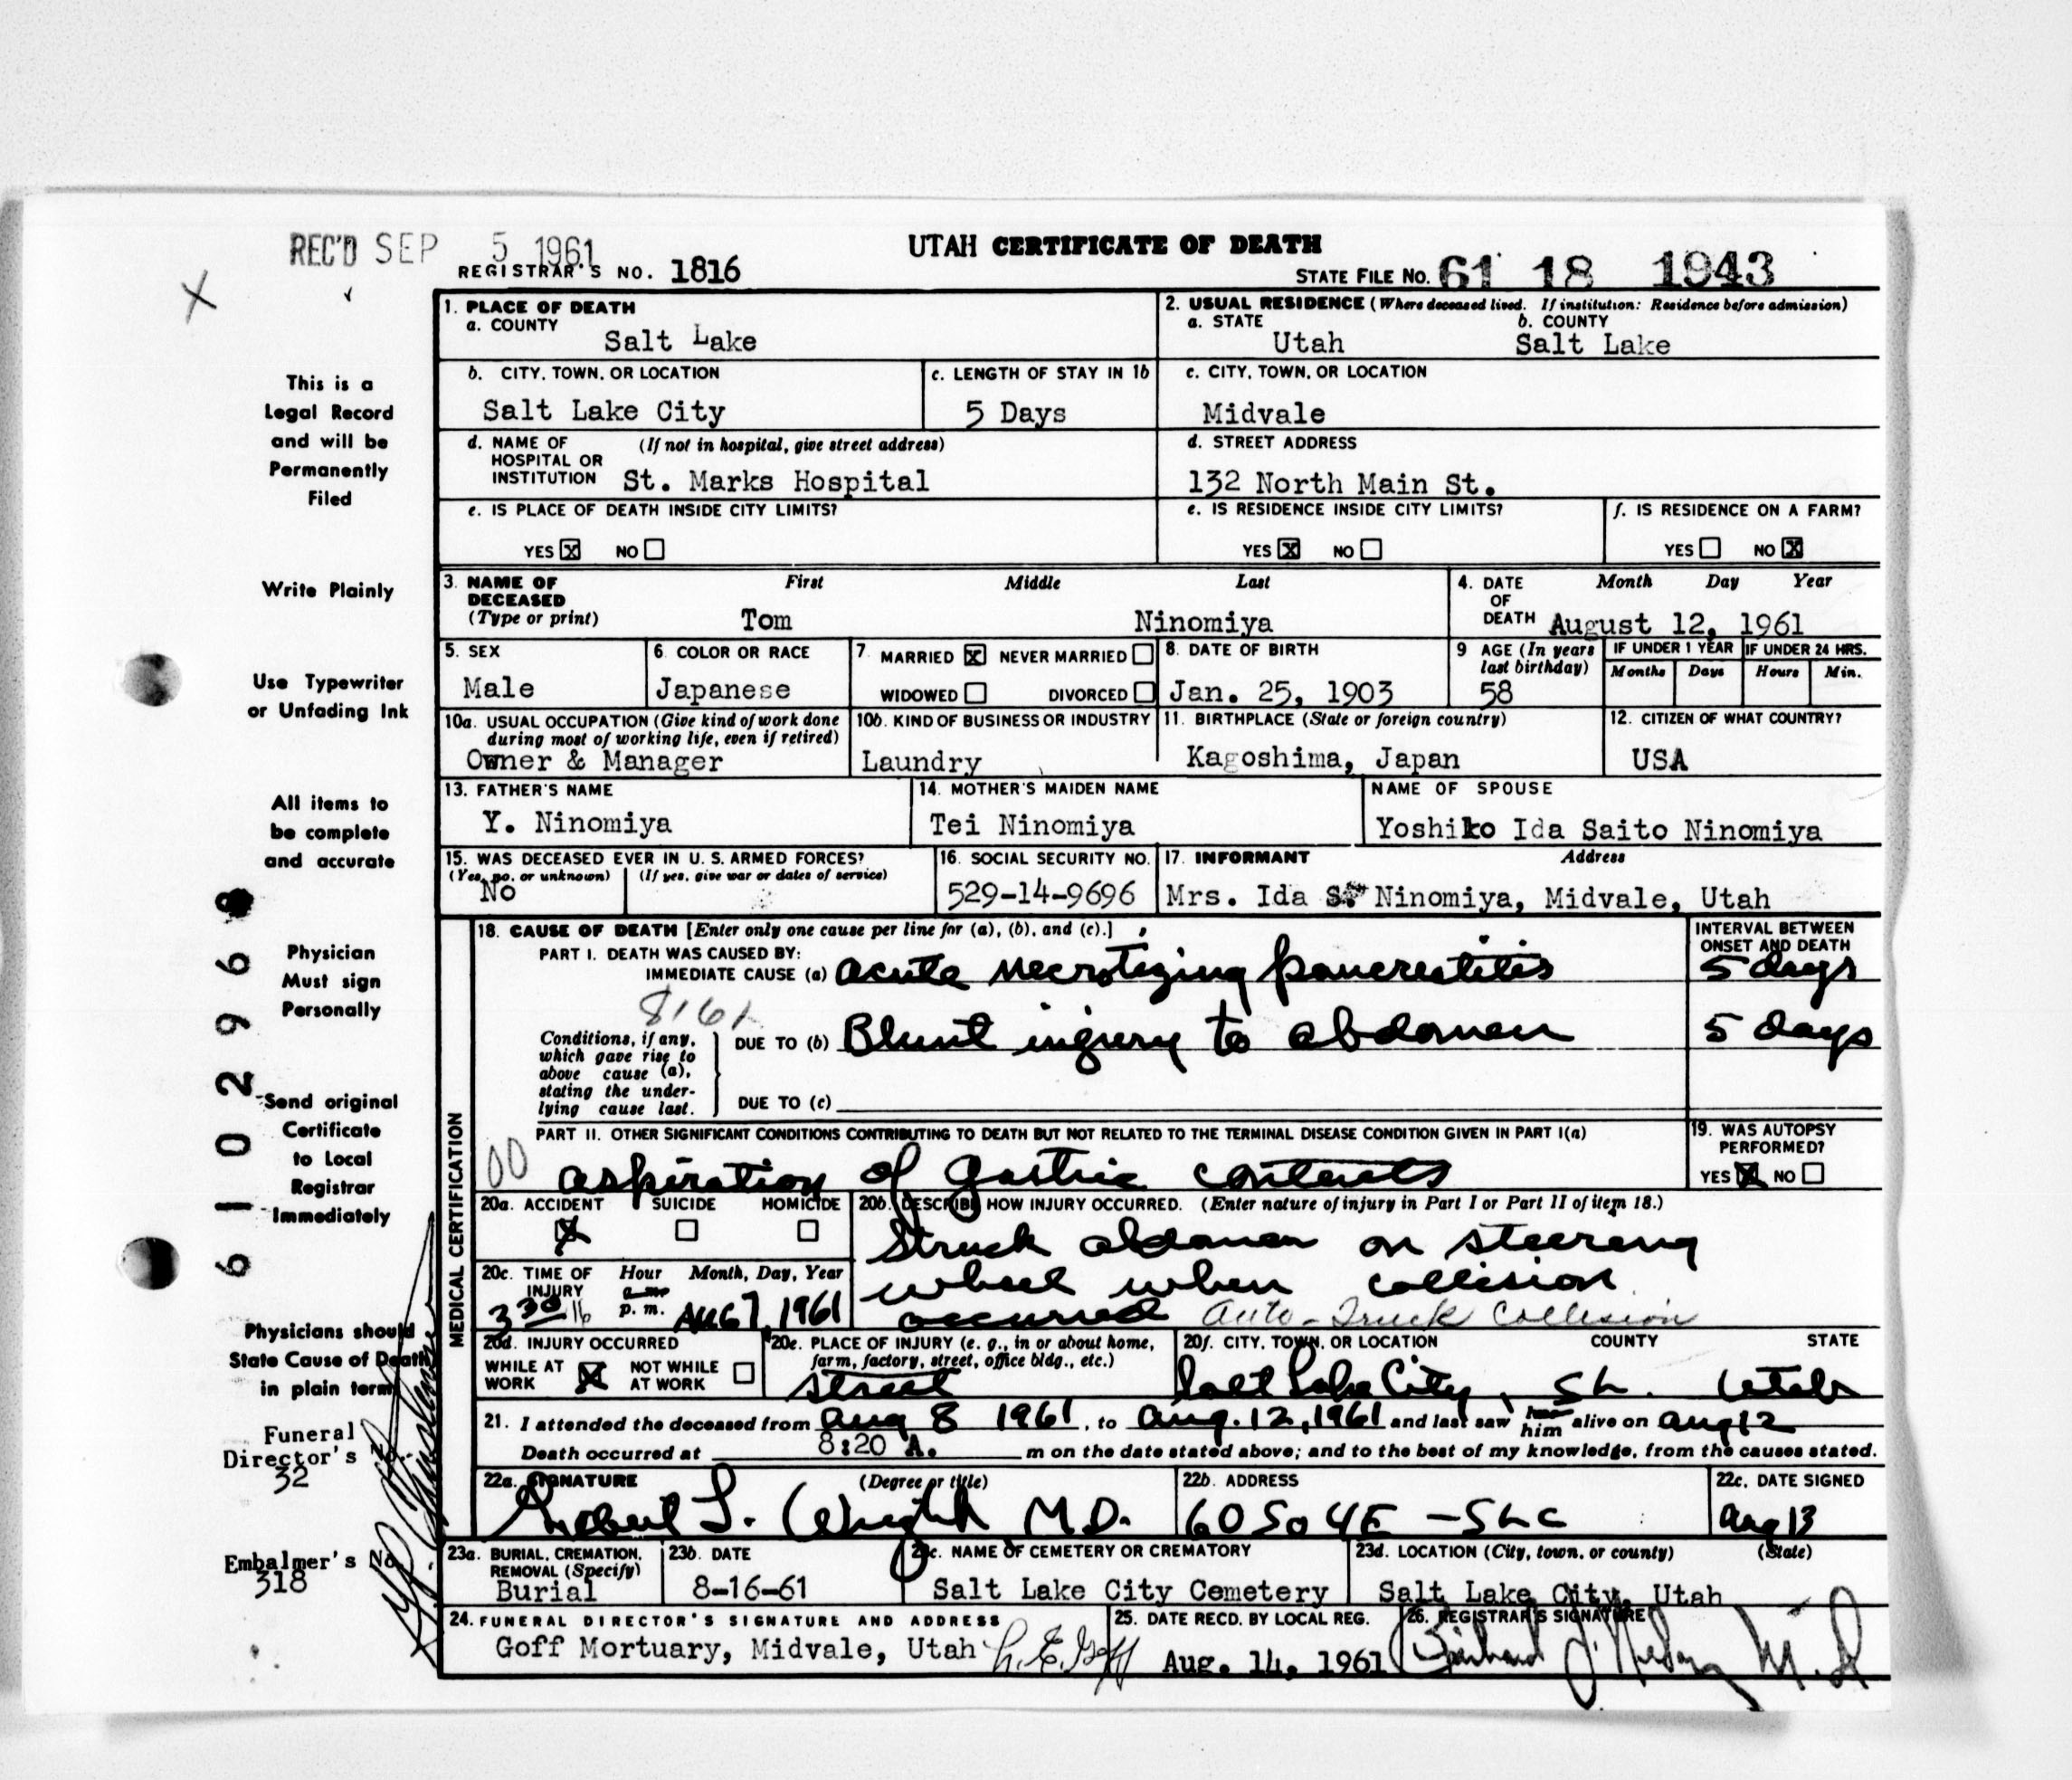 REC'D SEP 5 1961
UTAH CERTIFICATE OF DEATH
REGISTRAR'S NO. 1816
STATE FILE NO. 61 18 1943
This is a
Legal Record
and will be
Permanently
Filed
Write Plainly
Use Typewriter
or Unfading Ink
All items to
be complete
and accurate
Physician
Must sign
Personally
Send original
Certificate
to Local
Registrar
Immediately
Physicians should
State Cause of Death
in plain terms
Funeral
Director's No.
32
Embalmer's No.
318
1. PLACE OF DEATH
a. COUNTY
Salt Lake
2. USUAL RESIDENCE (Where deceased lived. If institution: Residence before admission)
a. STATE b. COUNTY
Utah Salt Lake
b. CITY, TOWN, OR LOCATION
Salt Lake City
c. LENGTH OF STAY IN 1b
5 Days
c. CITY, TOWN, OR LOCATION
Midvale
d. NAME OF (If not in hospital, give street address)
HOSPITAL OR
INSTITUTION St. Marks Hospital
d. STREET ADDRESS
132 North Main St.
e. IS PLACE OF DEATH INSIDE CITY LIMITS?
YES X NO
e. IS RESIDENCE INSIDE CITY LIMITS?
YES X NO
f. IS RESIDENCE ON A FARM?
YES NO X
3. NAME OF DECEASED (Type or print)
First Middle Last
Tom Ninomiya
4. DATE OF DEATH
Month Day Year
August 12, 1961
5. SEX
Male
6. COLOR OR RACE
Japanese
7 MARRIED X NEVER MARRIED
WIDOWED DIVORCED
8. DATE OF BIRTH
Jan. 25, 1903
9 AGE (In years last birthday)
58
IF UNDER 1 YEAR
Months Days
IF UNDER 24 HRS.
Hours Min.
10a. USUAL OCCUPATION (Give kind of work done
during most of working life, even if retired)
Owner & Manager
10b. KIND OF BUSINESS OR INDUSTRY
Laundry
11. BIRTHPLACE (State or foreign country)
Kagoshima, Japan
12. CITIZEN OF WHAT COUNTRY?
USA
13. FATHER'S NAME
Y. Ninomiya
14. MOTHER'S MAIDEN NAME
Tei Ninomiya
NAME OF SPOUSE
Yoshiko Ida Saito Ninomiya
15. WAS DECEASED EVER IN U. S. ARMED FORCES?
(Yes, no, or unknown) (If yes, give war or dates of service)
No
16. SOCIAL SECURITY NO.
529-14-9696
17. INFORMANT Address
Mrs. Ida S. Ninomiya, Midvale, Utah
MEDICAL CERTIFICATION
18. CAUSE OF DEATH [Enter only one cause per line for (a), (b), and (c).]
PART I. DEATH WAS CAUSED BY:
IMMEDIATE CAUSE (a) acute necrotizing pancreatitis
INTERVAL BETWEEN
ONSET AND DEATH
5 days
Conditions, if any,
which gave rise to
above cause (a),
stating the under-
lying cause last.
DUE TO (b) Blunt injury to abdomen
5 days
DUE TO (c)
PART II. OTHER SIGNIFICANT CONDITIONS CONTRIBUTING TO DEATH BUT NOT RELATED TO THE TERMINAL DISEASE CONDITION GIVEN IN PART I(a)
00 aspiration of gastric contents
19. WAS AUTOPSY
PERFORMED?
YES X NO
20a. ACCIDENT SUICIDE HOMICIDE
X
20b. DESCRIBE HOW INJURY OCCURRED. (Enter nature of injury in Part I or Part II of item 18.)
Struck abdomen on steering
wheel when collision
occurred Auto-Truck Collision
20c. TIME OF INJURY
Hour a. m. p. m. Month, Day, Year
3 30 Aug 7, 1961
20d. INJURY OCCURRED
WHILE AT WORK X NOT WHILE AT WORK
20e. PLACE OF INJURY (e. g., in or about home,
farm, factory, street, office bldg., etc.)
street
20f. CITY, TOWN, OR LOCATION COUNTY STATE
Salt Lake City, SL. Utah
21. I attended the deceased from Aug 8 1961, to Aug. 12, 1961 and last saw her him alive on Aug 12
Death occurred at 8:20 A. m on the date stated above; and to the best of my knowledge, from the causes stated.
22a. SIGNATURE (Degree or title)
L. Wright M.D.
22b. ADDRESS
60 So 4E - SLC
22c. DATE SIGNED
Aug 13
23a. BURIAL, CREMATION,
REMOVAL (Specify)
Burial
23b. DATE
8-16-61
23c. NAME OF CEMETERY OR CREMATORY
Salt Lake City Cemetery
23d. LOCATION (City, town, or county) (State)
Salt Lake City, Utah
24. FUNERAL DIRECTOR'S SIGNATURE AND ADDRESS
Goff Mortuary, Midvale, Utah L. E. Goff
25. DATE RECD. BY LOCAL REG.
Aug. 14, 1961
26. REGISTRAR'S SIGNATURE